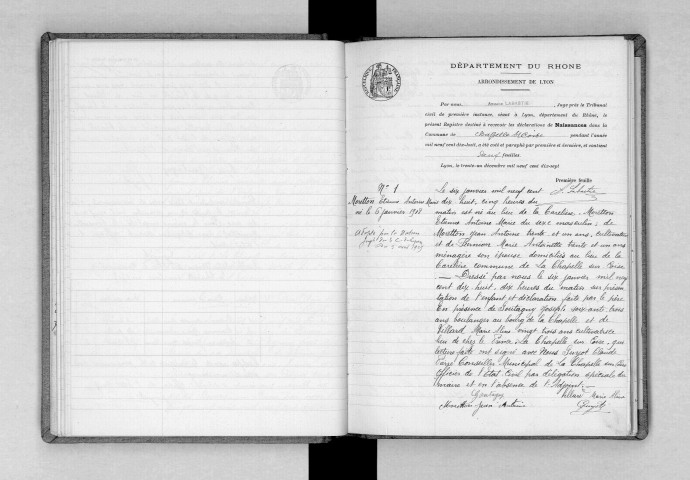 DÉPARTEMENT DU RHONE
ARRONDISSEMENT DE LYON
Par nous, , Juge près le Tribunal
civil de première instance, séant à Lyon, département du Rhône, le
présent Registre destiné à recevoir les déclarations de Naissances dans la
Commune de pendant l'année
mil neuf cent dix-huit, a été coté et paraphé par première et dernière, et contient
feuilles.
Lyon, le trente-un décembre mil neuf cent dix-sept
Première feuille
N° 1
Moretton Etienne Antoine Marie
né le 6 janvier 1918
Le six janvier mil neuf cent
dix huit, cinq heures du
matin est né au lieu de la Moretton
Etienne Antoine Marie du sexe masculin; de
Moretton Jean Antoine trente et un ans, cultivateur
et de Marie Antoinette trente et un ans
ménagère son épouse domiciliés au lieu de la
commune de La Chapelle sur Coise
Dressé par nous le six janvier mil neuf
cent dix-huit, dix heures du matin sur présen
tation de l'enfant et déclaration faite par le père
En présence de Joseph soixante trois
ans boulanger au bourg de La Chapelle et de
Villard Marie vingt trois ans cultivatrice
lieu de chez à La Chapelle sur Coise, qui
lecture faite ont signé avec Nous Claude
Conseiller Municipal de La Chapelle sur Coise
Officier de l'Etat Civil par délégation spéciale du
maire et en l'absence de l'Adjoint.
Villard Marie
Moretton Jean Antoine